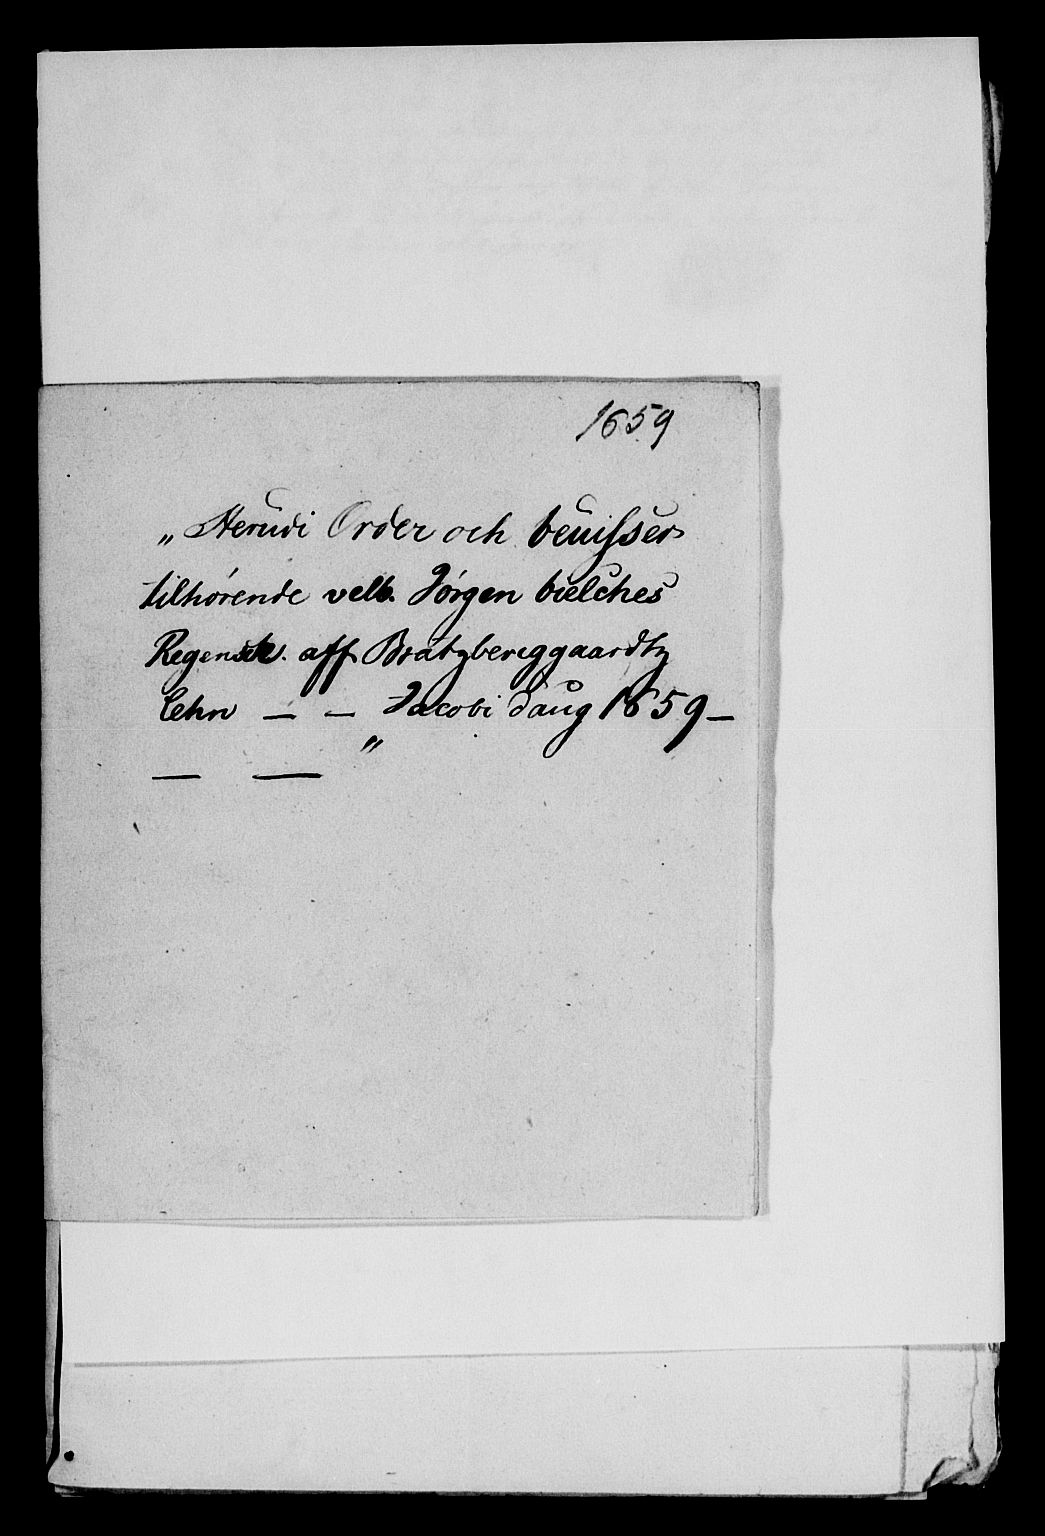 1659
„Herudi Order och beuisser
tilhørende velb. Jørgen bielches
Regensk. aff Bratzberiggaardtz
lehn — — Jacobi daug 1659 —
— — "